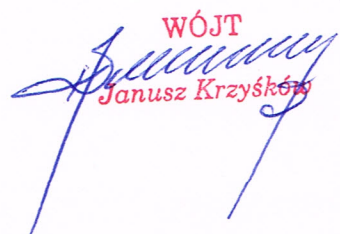 WÓJT
Janusz Krzyśków